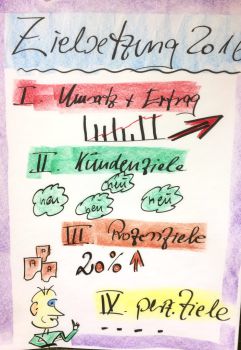 Zielsetzung 2016
I. Umsatz + Ertrag
II. Kundenziele
neu neu neu neu
III. Prozenziele
20%
IV pers. Ziele